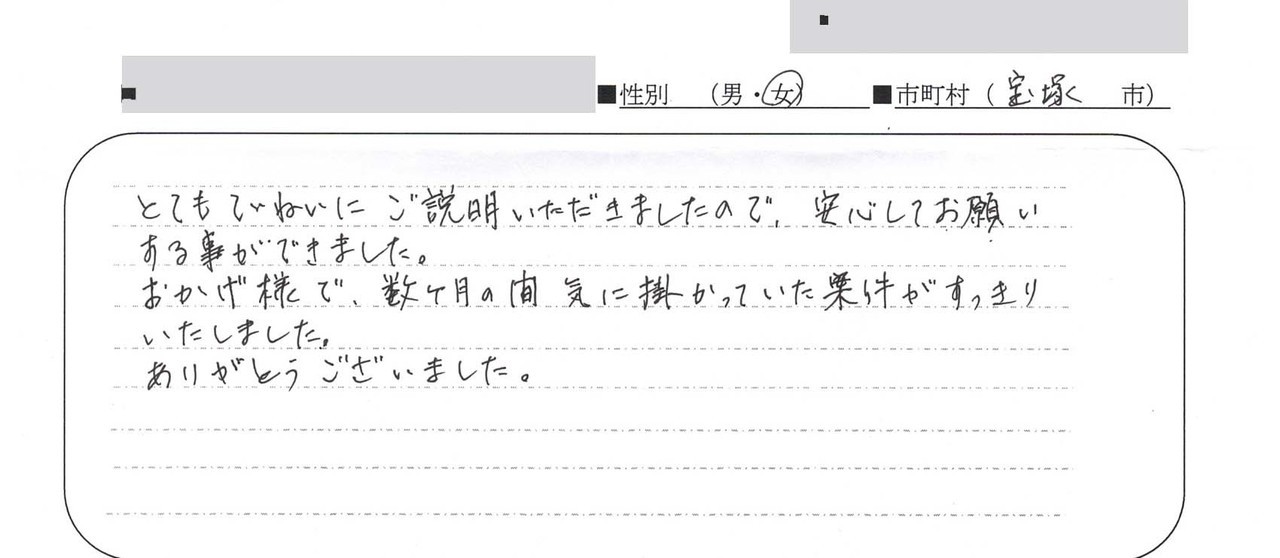 ■性別 （男・女） ■市町村（宝塚 市）
とてもていねいに ご説明いただきましたので、安心してお願い
する事ができました。
おかげ様で、数ケ月の間 気に掛かっていた案件がすっきり
いたしました。
ありがとうございました。